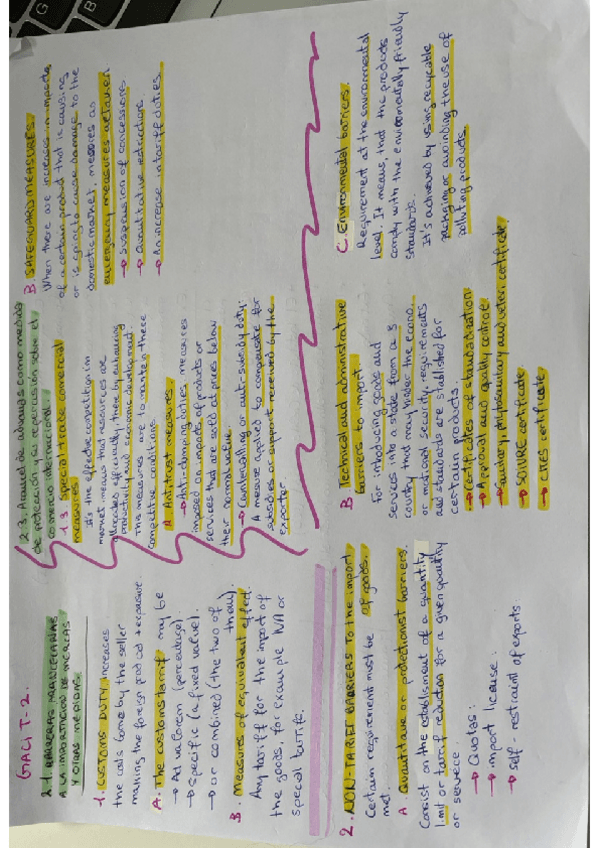 GACI T-2.
2.1. BARRERAS ARANCELARIAS
A LA IMPORTACIÓN DE MERCAS
Y OTRAS MEDIDAS
1. CUSTOMS DUTY, increases
the costs borne by the seller
making the foreign product + expensive
A. The customs tariff may be
→ Ad valorem (percentage)
→ Specific (a fixed value).
→ or combined (the two of
them).
B. Measures of equivalent effect.
Any tariff for the import of
the goods, for example IVA or
special tariffs.
2.3. Arancel de aduanas como medida
de protección y su repercusión sobre el
comercio internacional.
1.3. Special trade comercial
measures
It's the effective competition in
market means that resources are
allocated efficiently, there by enhancing
productivity and economic development.
This measures are to mantein these
competitive conditions.
A. Antitrust measures.
→ Anti-dumping duties: measures
imposed on imports of products or
services that are sold at prices below
their normal value.
→ Countervailing or anti-subsidy duty:
A measure applied to compensate for
subsidies or support received by the
exporter
B. SAFEGUARD MEASURES.
When there are increases in imports
of a certain product that is causing
or is going to cause damage to the
domestic market, measures as
emergency measures are taken
→ Suspension of concessions
→ Quantitative restrictions
→ An increase in tariff duties.
2. NON-TARIFF BARRIERS TO the import
of goods.
Certain requirement must be
met.
A. Quantitave or protectionist barriers.
Consist on the establishment of a quantity
limit or tariff reduction for a given quantity
or service.
→ Quotas:
→ import license:
→ self-restraint of exports
B Technical and administrative
barriers to import
For introducing goods and
services into a state from a 3
country that may hinder the econo.
or national security, requirements
and standards are stablished for
certain products.
→ Certificates of standardization
→ Approval and quality control
→ sanitary, phytosanitary and veteri. certificate.
→ SOIVRE certificate.
→ CITES certificate
C. Environmental barriers.
Requirement at the environmental
level. It means, that the products
comply with the environmentally friendly
standards.
It's achieved by using recyclable
packaging or avoinding the use of
polluting products.